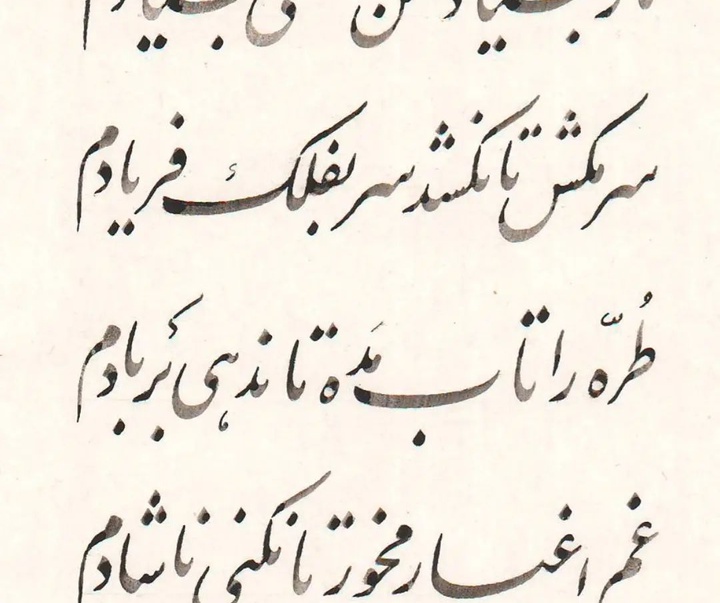 سر مکش تا نکشد سر بفلک فریادم
طُرّه را تاب مَده تا ندهی بَر بادم
غم اغیار مخور تا نکنی ناشادم